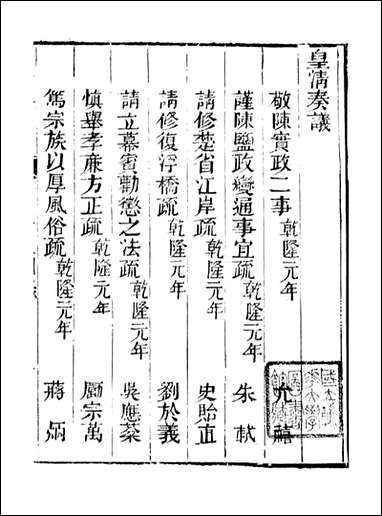 皇清奏議
敬陳實政二事乾隆元年 允禧
謹陳鹽政變通事宜疏乾隆元年 朱軾
請修楚省江岸疏乾隆元年 史貽直
請修復浮橋疏乾隆元年 劉於義
請立幕賓勸懲之法疏乾隆元年 吳應棻
慎舉孝亷方正疏乾隆元年 厲宗萬
篤宗族以厚風俗疏乾隆元年 蔣炳